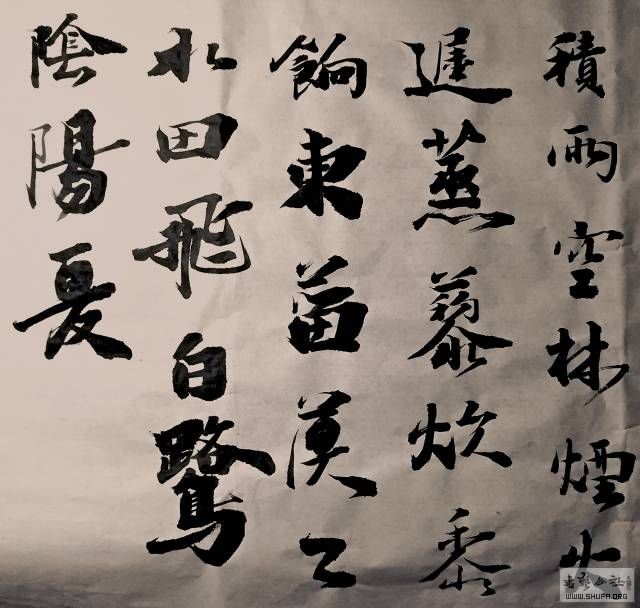 積雨空林煙火
遲蒸藜炊黍
餉東菑漠〻
水田飛白鷺
陰陽夏
WWW.SHUFA.ORG